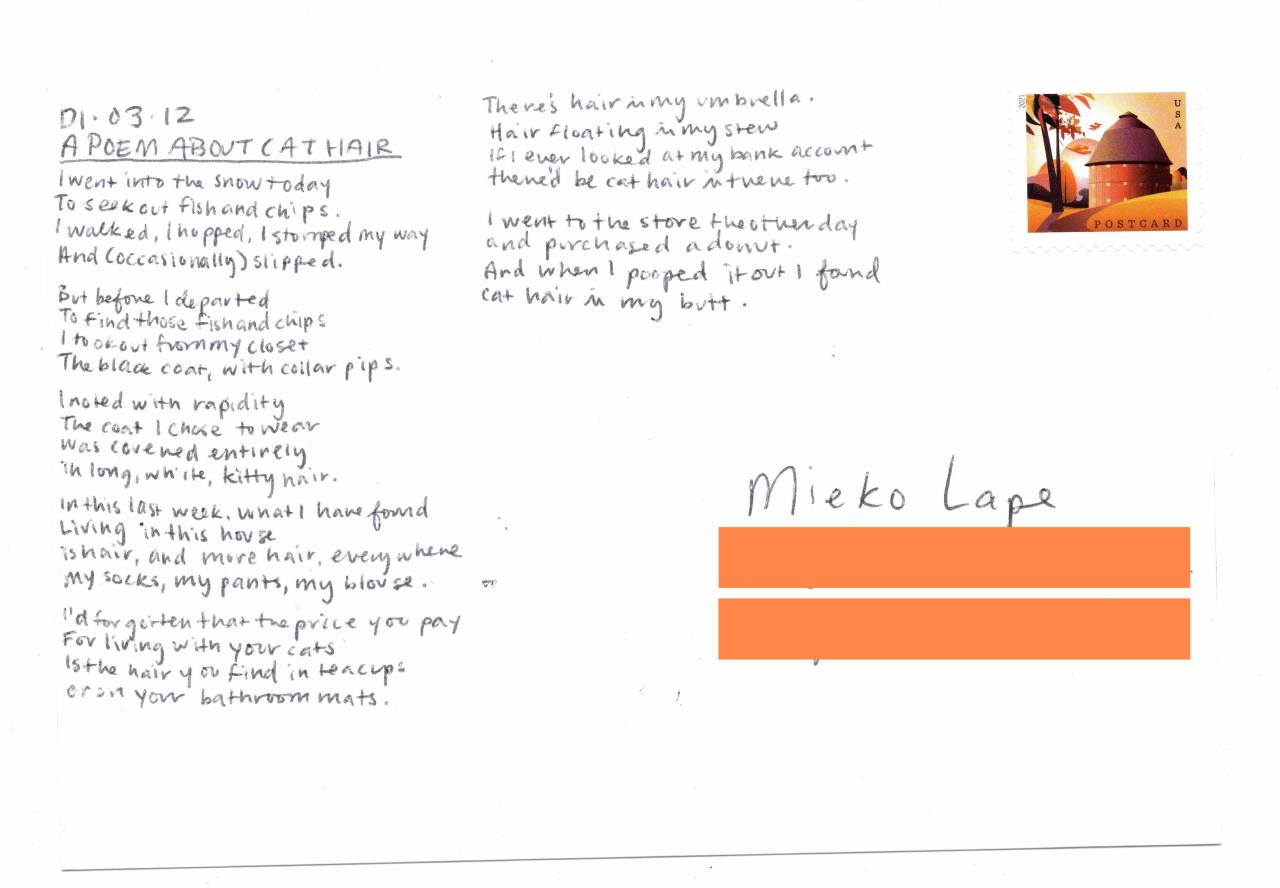 DI.03.12
A POEM ABOUT CAT HAIR
I went into the snow today
To seek out fish and chips.
I walked, I hopped, I stomped my way
And (occasionally) slipped.
But before I departed
To find those fish and chips
I took out from my closet
The black coat, with collar pips.
I noted with rapidity
The coat I chose to wear
was covered entirely
in long, white, kitty hair.
In this last week, what I have found
Living in this house
is hair, and more hair, everywhere
My socks, my pants, my blouse.
I'd forgotten that the price you pay
For living with your cats
Is the hair you find in teacups
or on your bathroom mats.
There's hair in my umbrella.
Hair floating in my stew
if I ever looked at my bank account
there'd be cat hair in there too.
I went to the store the other day
and purchased a donut.
And when I pooped it out I found
cat hair in my butt.
2021
USA
POSTCARD
Mieko Lape